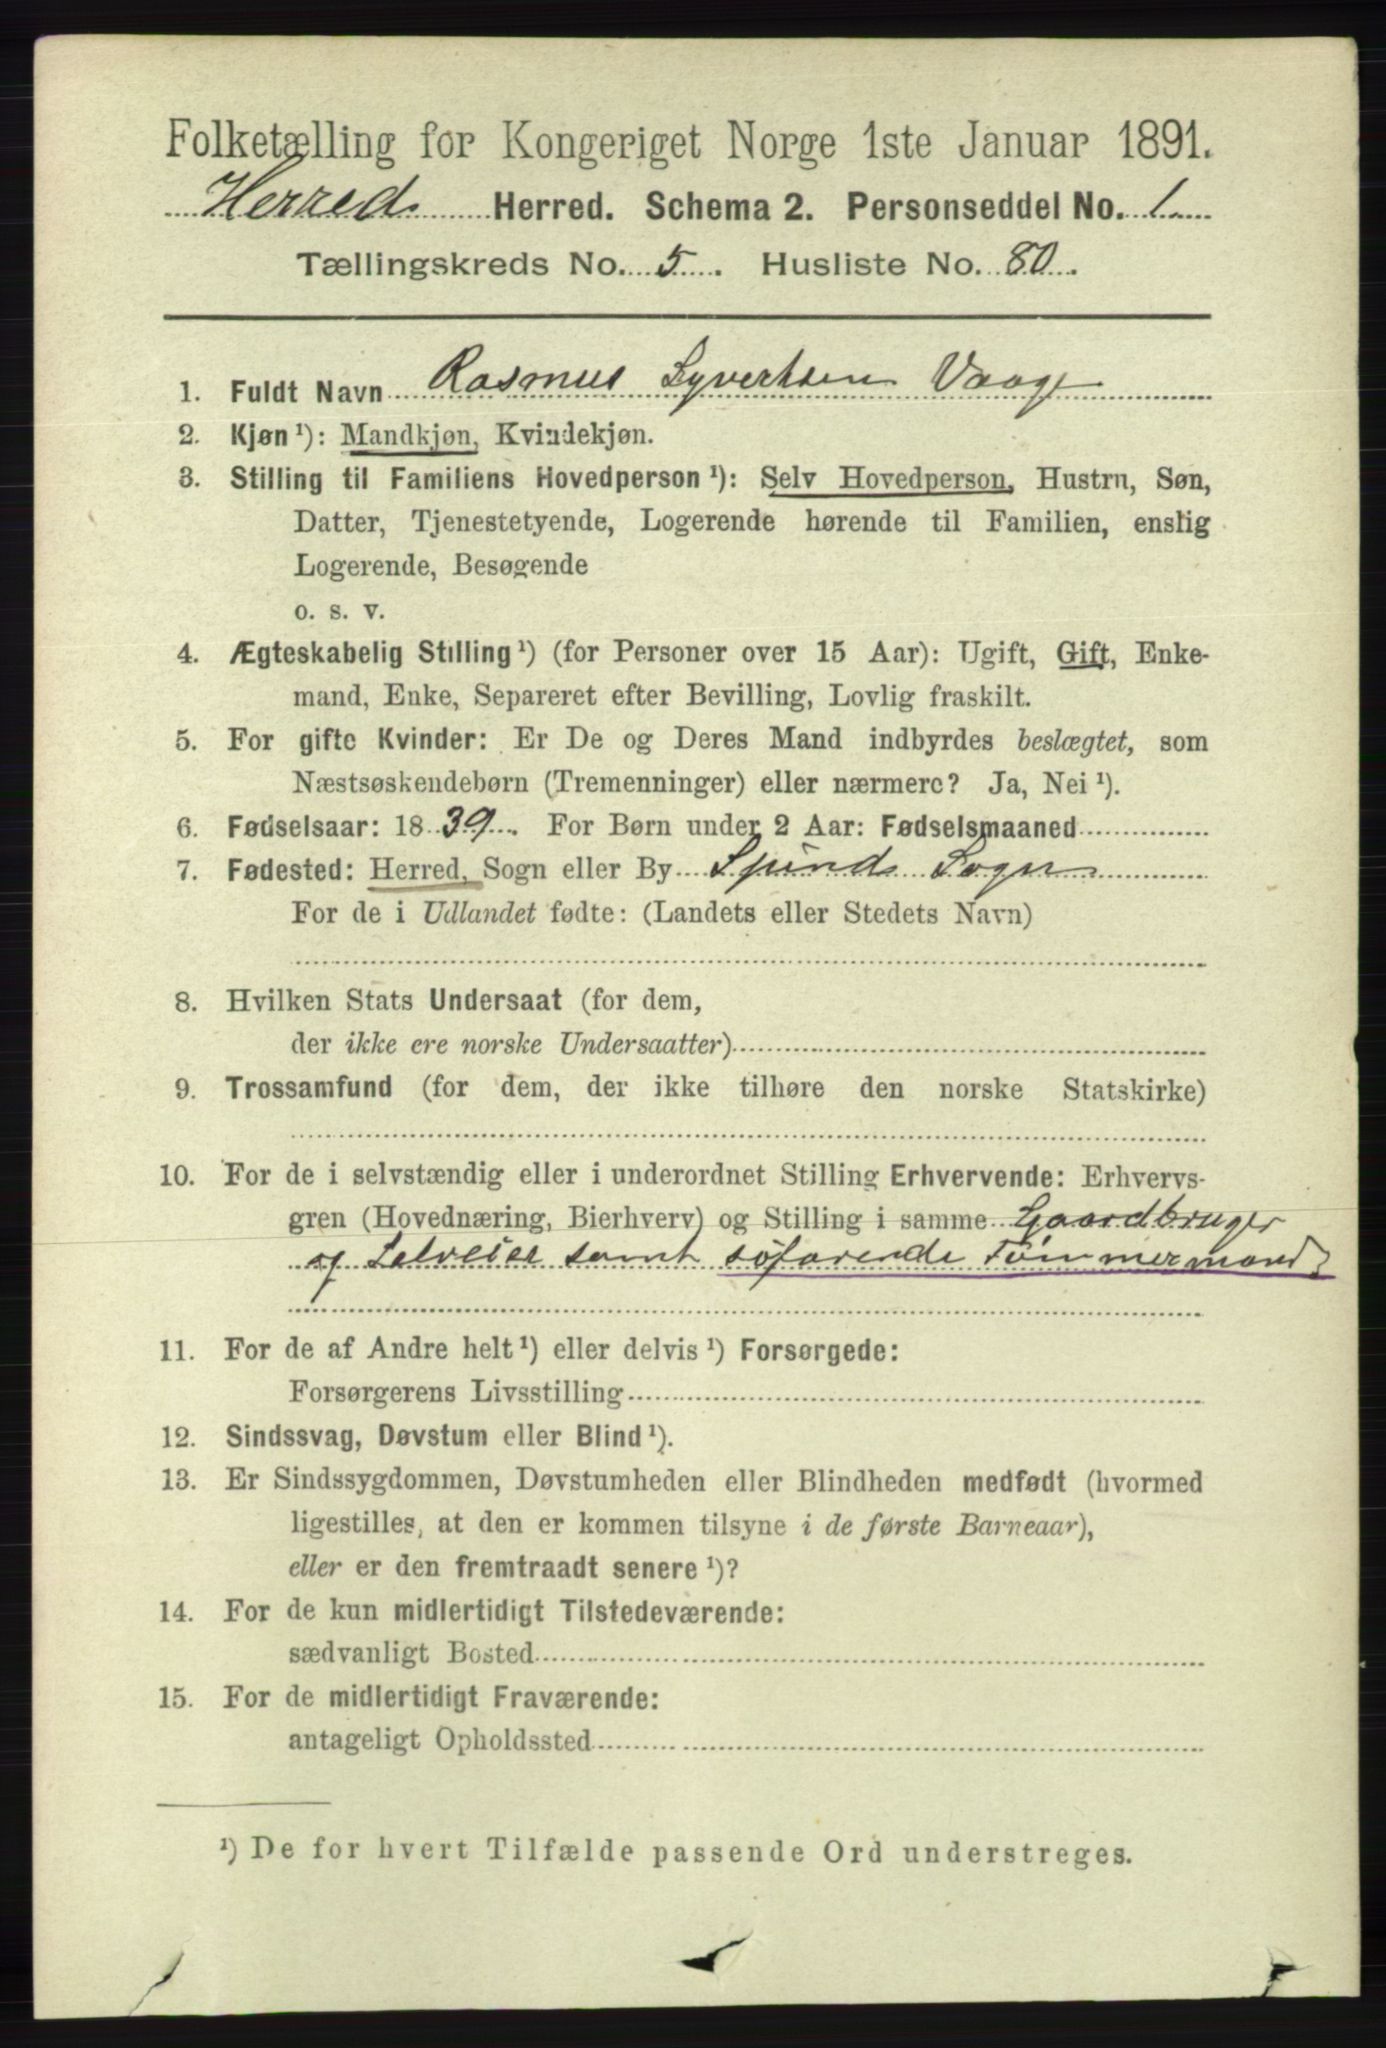 Folketælling for Kongeriget Norge 1ste Januar 1891.
Herred Herred. Schema 2. Personseddel No. 1
Tællingskreds No. 5. Husliste No. 80.
1. Fuldt Navn Rasmus Syvertsen Vaage
2. Kjøn ¹): Mandkjøn, Kvindekjøn.
3. Stilling til Familiens Hovedperson ¹): Selv Hovedperson, Hustru, Søn,
Datter, Tjenestetyende, Logerende hørende til Familien, enslig
Logerende, Besøgende
o. s. v.
4. Ægteskabelig Stilling ¹) (for Personer over 15 Aar): Ugift, Gift, Enke-
mand, Enke, Separeret efter Bevilling, Lovlig fraskilt.
5. For gifte Kvinder: Er De og Deres Mand indbyrdes beslægtet, som
Næstsøskendebørn (Tremenninger) eller nærmere? Ja, Nei ¹).
6. Fødselsaar: 1839. For Børn under 2 Aar: Fødselsmaaned
7. Fødested: Herred, Sogn eller By Spind Sogn
For de i Udlandet fødte: (Landets eller Stedets Navn)
8. Hvilken Stats Undersaat (for dem,
der ikke ere norske Undersaatter)
9. Trossamfund (for dem, der ikke tilhøre den norske Statskirke)
10. For de i selvstændig eller i underordnet Stilling Erhvervende: Erhvervs-
gren (Hovednæring, Bierhverv) og Stilling i samme Gaardbruger
og Selveier samt søfarende Tømmermand
11. For de af Andre helt ¹) eller delvis ¹) Forsørgede:
Forsørgerens Livsstilling
12. Sindssvag, Døvstum eller Blind ¹).
13. Er Sindssygdommen, Døvstumheden eller Blindheden medfødt (hvormed
ligestilles, at den er kommen tilsyne i de første Barneaar),
eller er den fremtraadt senere ¹)?
14. For de kun midlertidigt Tilstedeværende:
sædvanligt Bosted
15. For de midlertidigt Fraværende:
antageligt Opholdssted
¹) De for hvert Tilfælde passende Ord understreges.